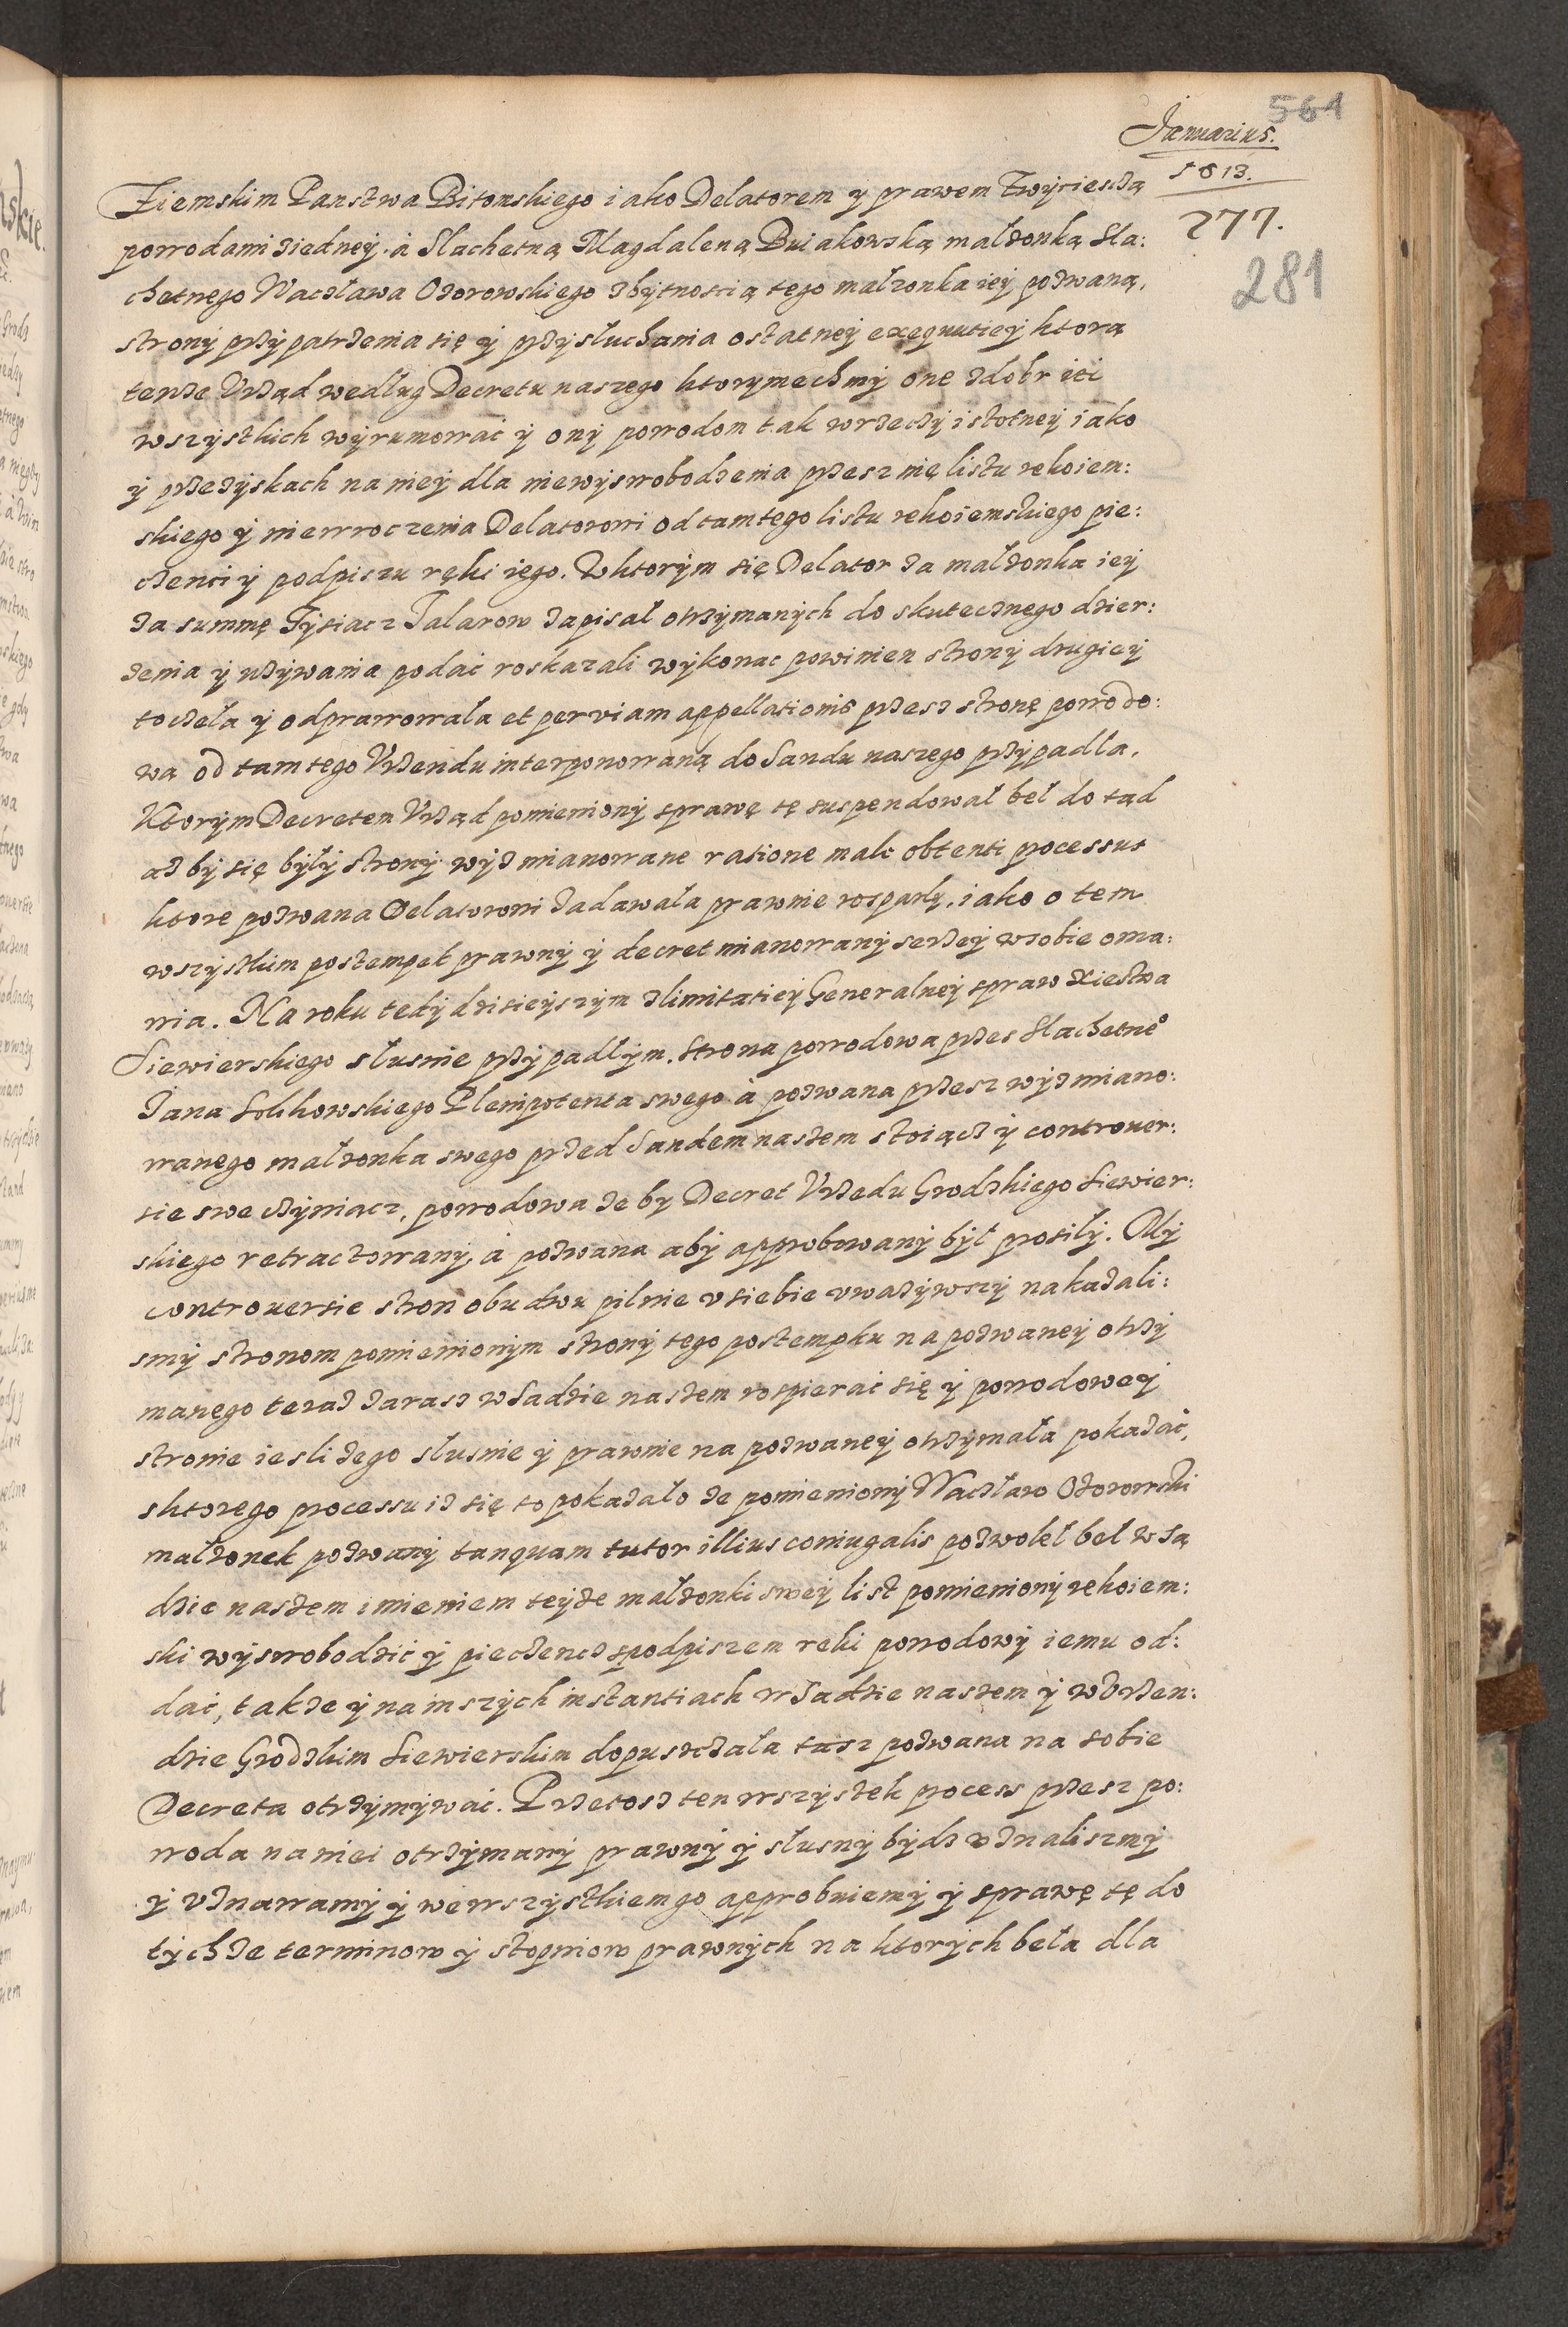 561
Januarius.
1613.
277.
281
Ziemskim Panstwa Bitomskiego iako Delatorem y prawem Zwyciesczą
powodami ziedney. á Slachetną Magdaleną Buiakowską małzonką Sla:
chetnego Waczława Ozorowskiego zbytnoscią tego małzonka iey pozwaną,
strony przypatrzenia się y przysłuchania ostatney exequutiey ktorą
tenze Vrząd według Decretu naszego ktorymechmy onę zdobr iei
wszystkich wyrumowac y ony powodom tak wrzeczy istotney iako
y przezyskach na niey dla niewyswobodzenia przesz nię listu rekoiem:
skiego y niewroczenia Delatorowi od tamtego listu rekoiemskiego pie:
czenci y podpiszu ręki iego. Wktorym się Delator za małzonka iey
za summę Tysiacz Talarow zapisał otrzymanych do skutecznego dzier:
zenia y uzywania podac roskazali wykonac powinien strony drugiey
toczeła y odprawowała et per viam appellationis przesz stronę powodo:
wą od tamtego Vrzendu interponowaną do Sandu naszego przypadla.
Ktorym Decretem Vrząd pomieniony sprawę tę suspendował beł do tąd
az by się były strony wyzmianowane ratione male obtenti processus
ktore pozwana Delatorowi zadawała prawnie rosparły, iako o tem
wszystkim postempek prawny y decret mianowany serzey wsobie oma:
wia. Na roku tedy dzisieyszym zlimitatiey Generalney spraw Xiestwa
Siewierskiego slusnie przypadłym. Strona powodowa przes Slachetne°
Jana Solikowskiego Plenipotenta swego á pozwana przesz wyzmiano:
wanego małzonka swego przed Sandem naszem stoiącz y controuer:
sie swe czyniacz, powodowa ze by Decret Vrzedu Grodzkiego Siewier:
skiego retractowany, á pozwana aby approbowany był prosiły. My
controuersie stron obudwu pilnie v siebie vwazywszy nakazali:
smy stronom pomienionym strony tego postempku na pozwaney otrzy
manego teraz zarasz wSadzie naszem rospierac się y powodowey
stronie iesli zego slusnie y prawnie na pozwaney otrzymała pokazac,
sktorego processu iz się to pokazało ze pomieniony Waczław Ozorowski
małzonek pozwany tanquam tutor illius coniugalis pozwoleł beł wSą
dzie naszem imieniem teyze małzonki swey list pomieniony rekoiem:
ski wyswobodzic y pieczencz spodpiszem reki powodowy iemu od:
dac, takze y na inszych instantiach wSadzie naszem y wVrzen:
dzie Grodzkim Siewierskim dopusczała tasz pozwana na sobie
Decreta otrzymywac. Przetosz ten wszystek process przesz po:
woda na niei otrzymany prawny y slusny bydz vznaliszmy
y vznawamy y wewszystkiem go approbuiemy y sprawę tę do
tychze terminow y stopniow prawnych na ktorych beła dla